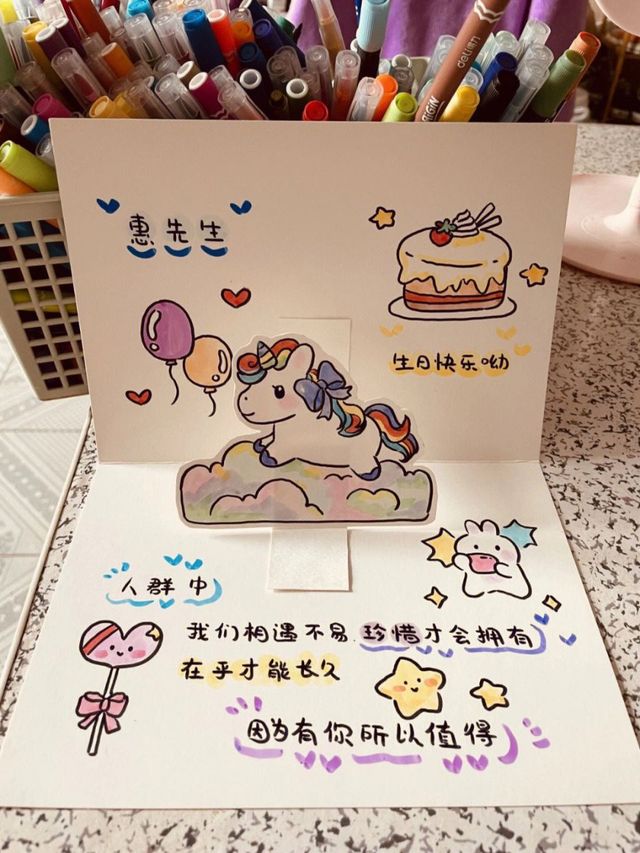 惠先生
生日快乐呦
人群中
我们相遇不易 珍惜才会拥有
在乎才能长久
因为有你所以值得